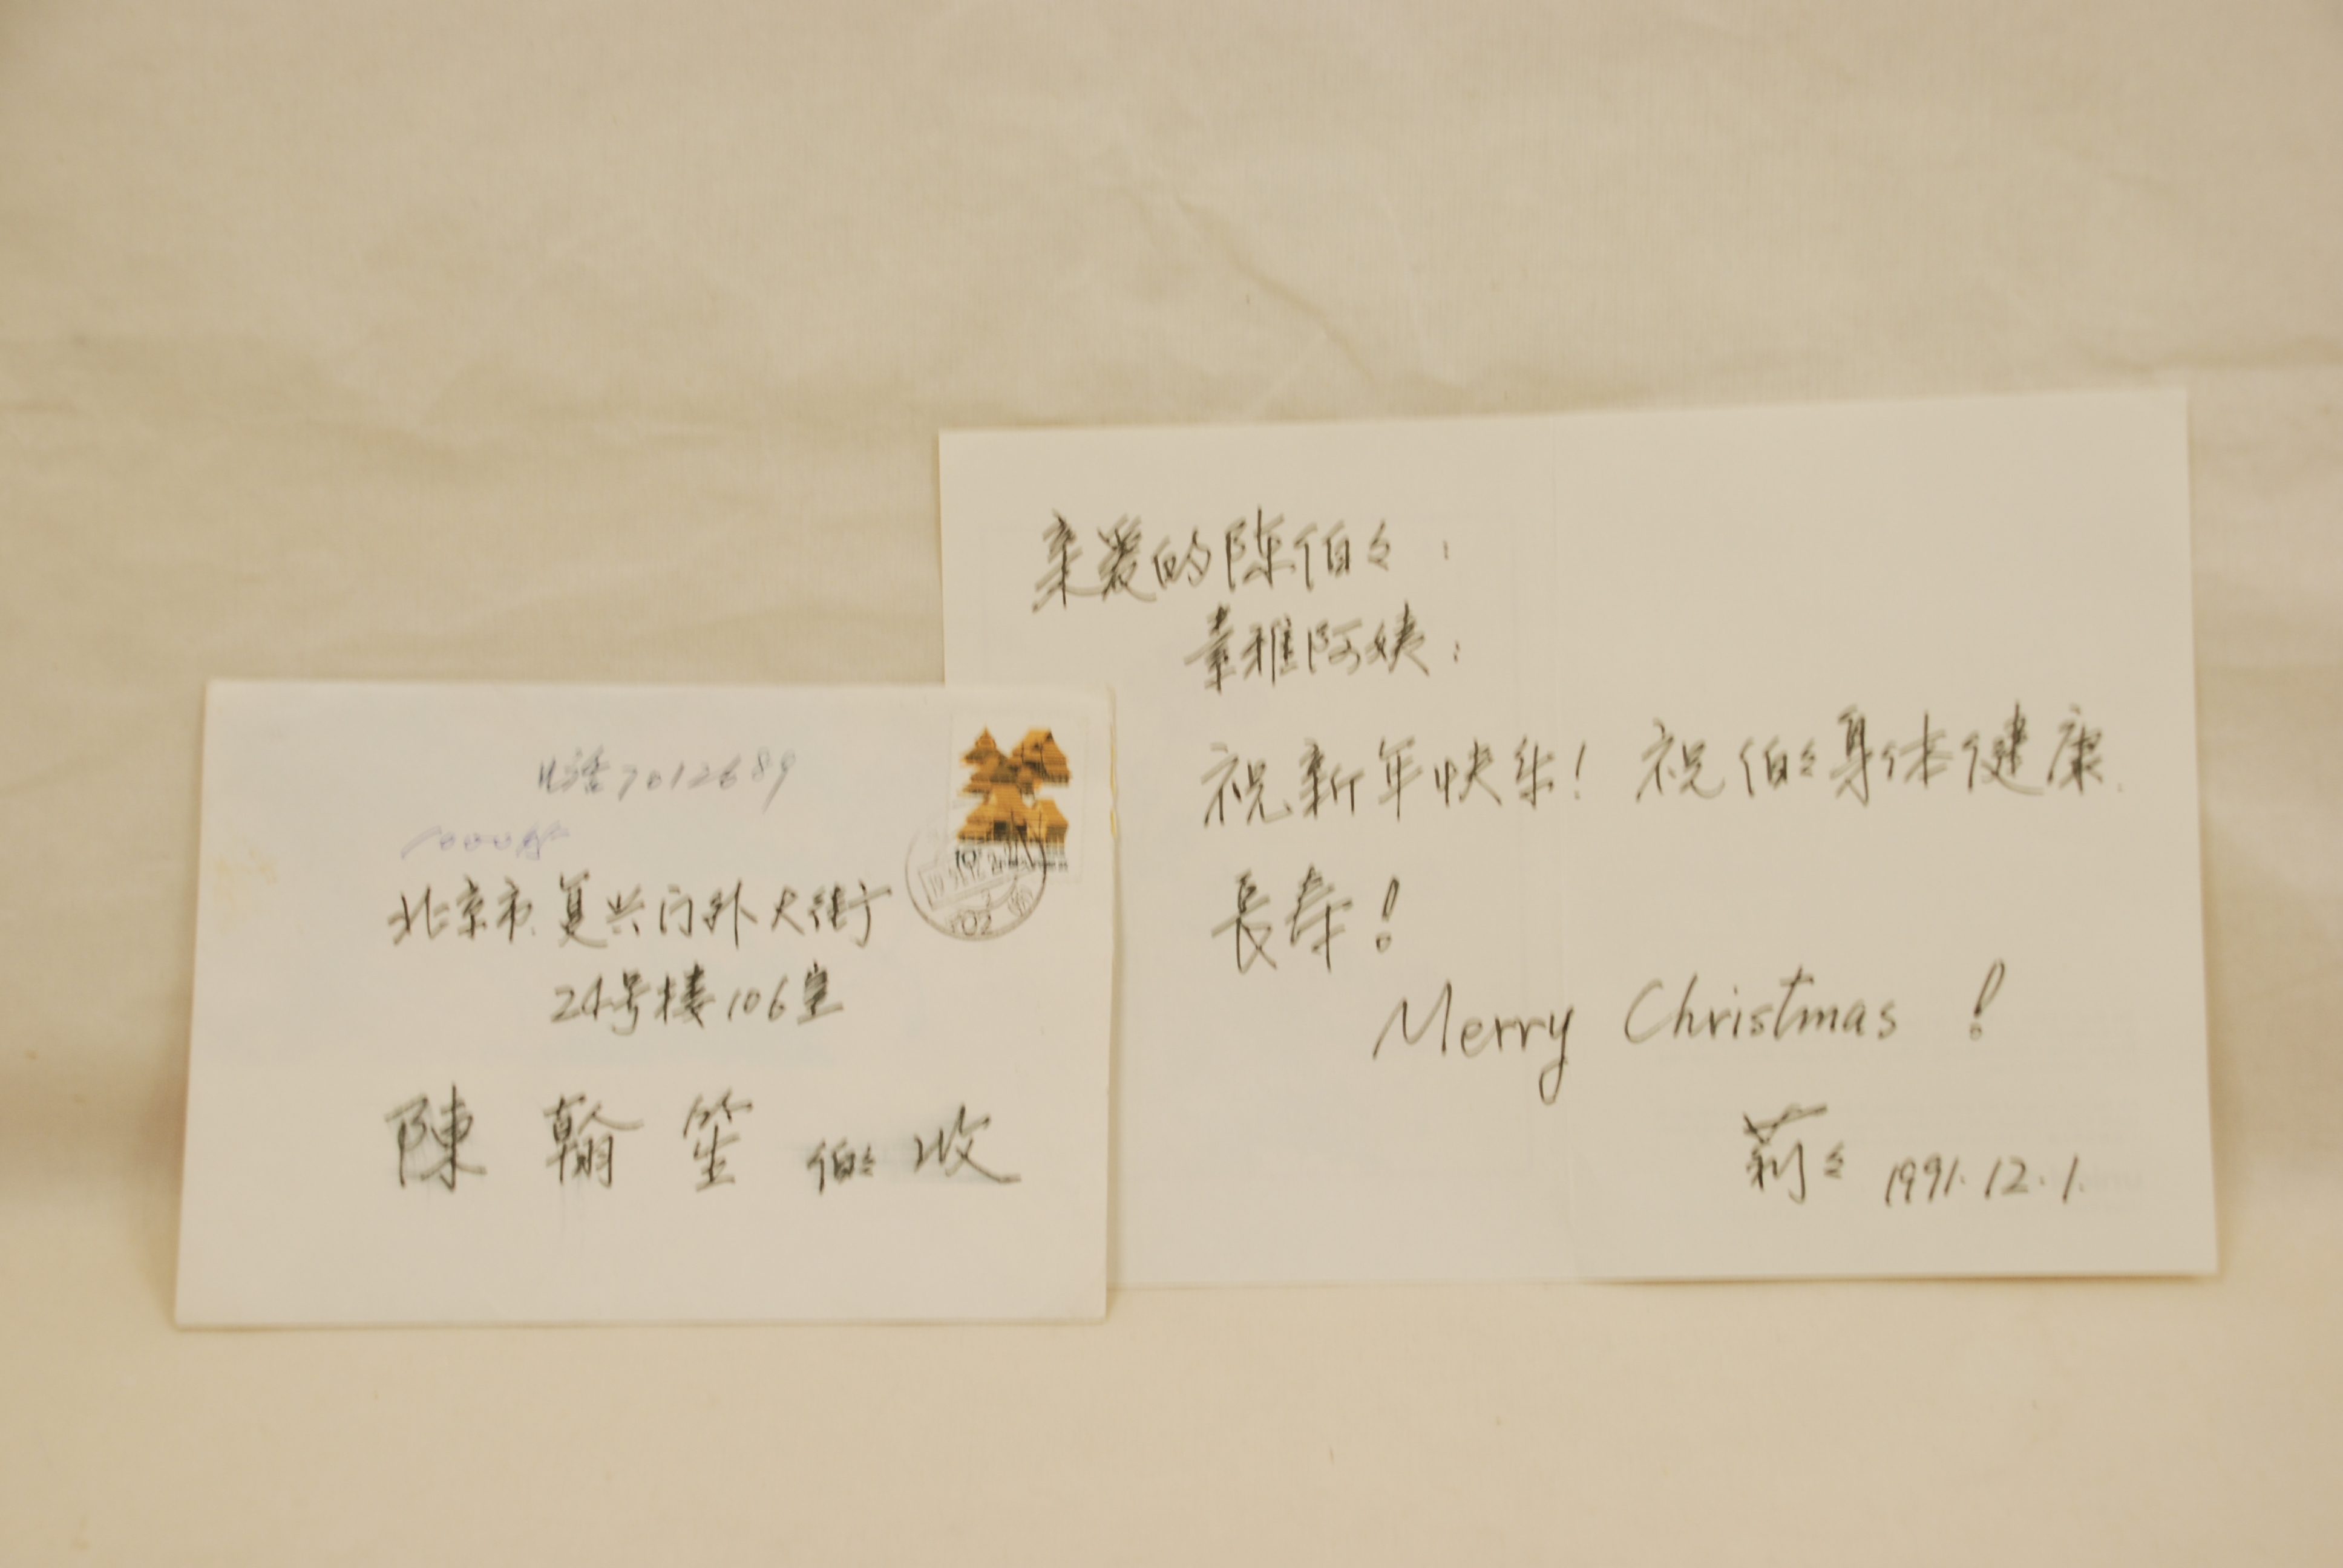 电话7012689
北京市复兴门外大街
24号楼106室
陳翰笙伯々收
亲爱的陈伯々:
素雅阿姨:
祝新年快乐!祝伯々身体健康.
長寿!
Merry Christmas!
莉々 1991.12.1.